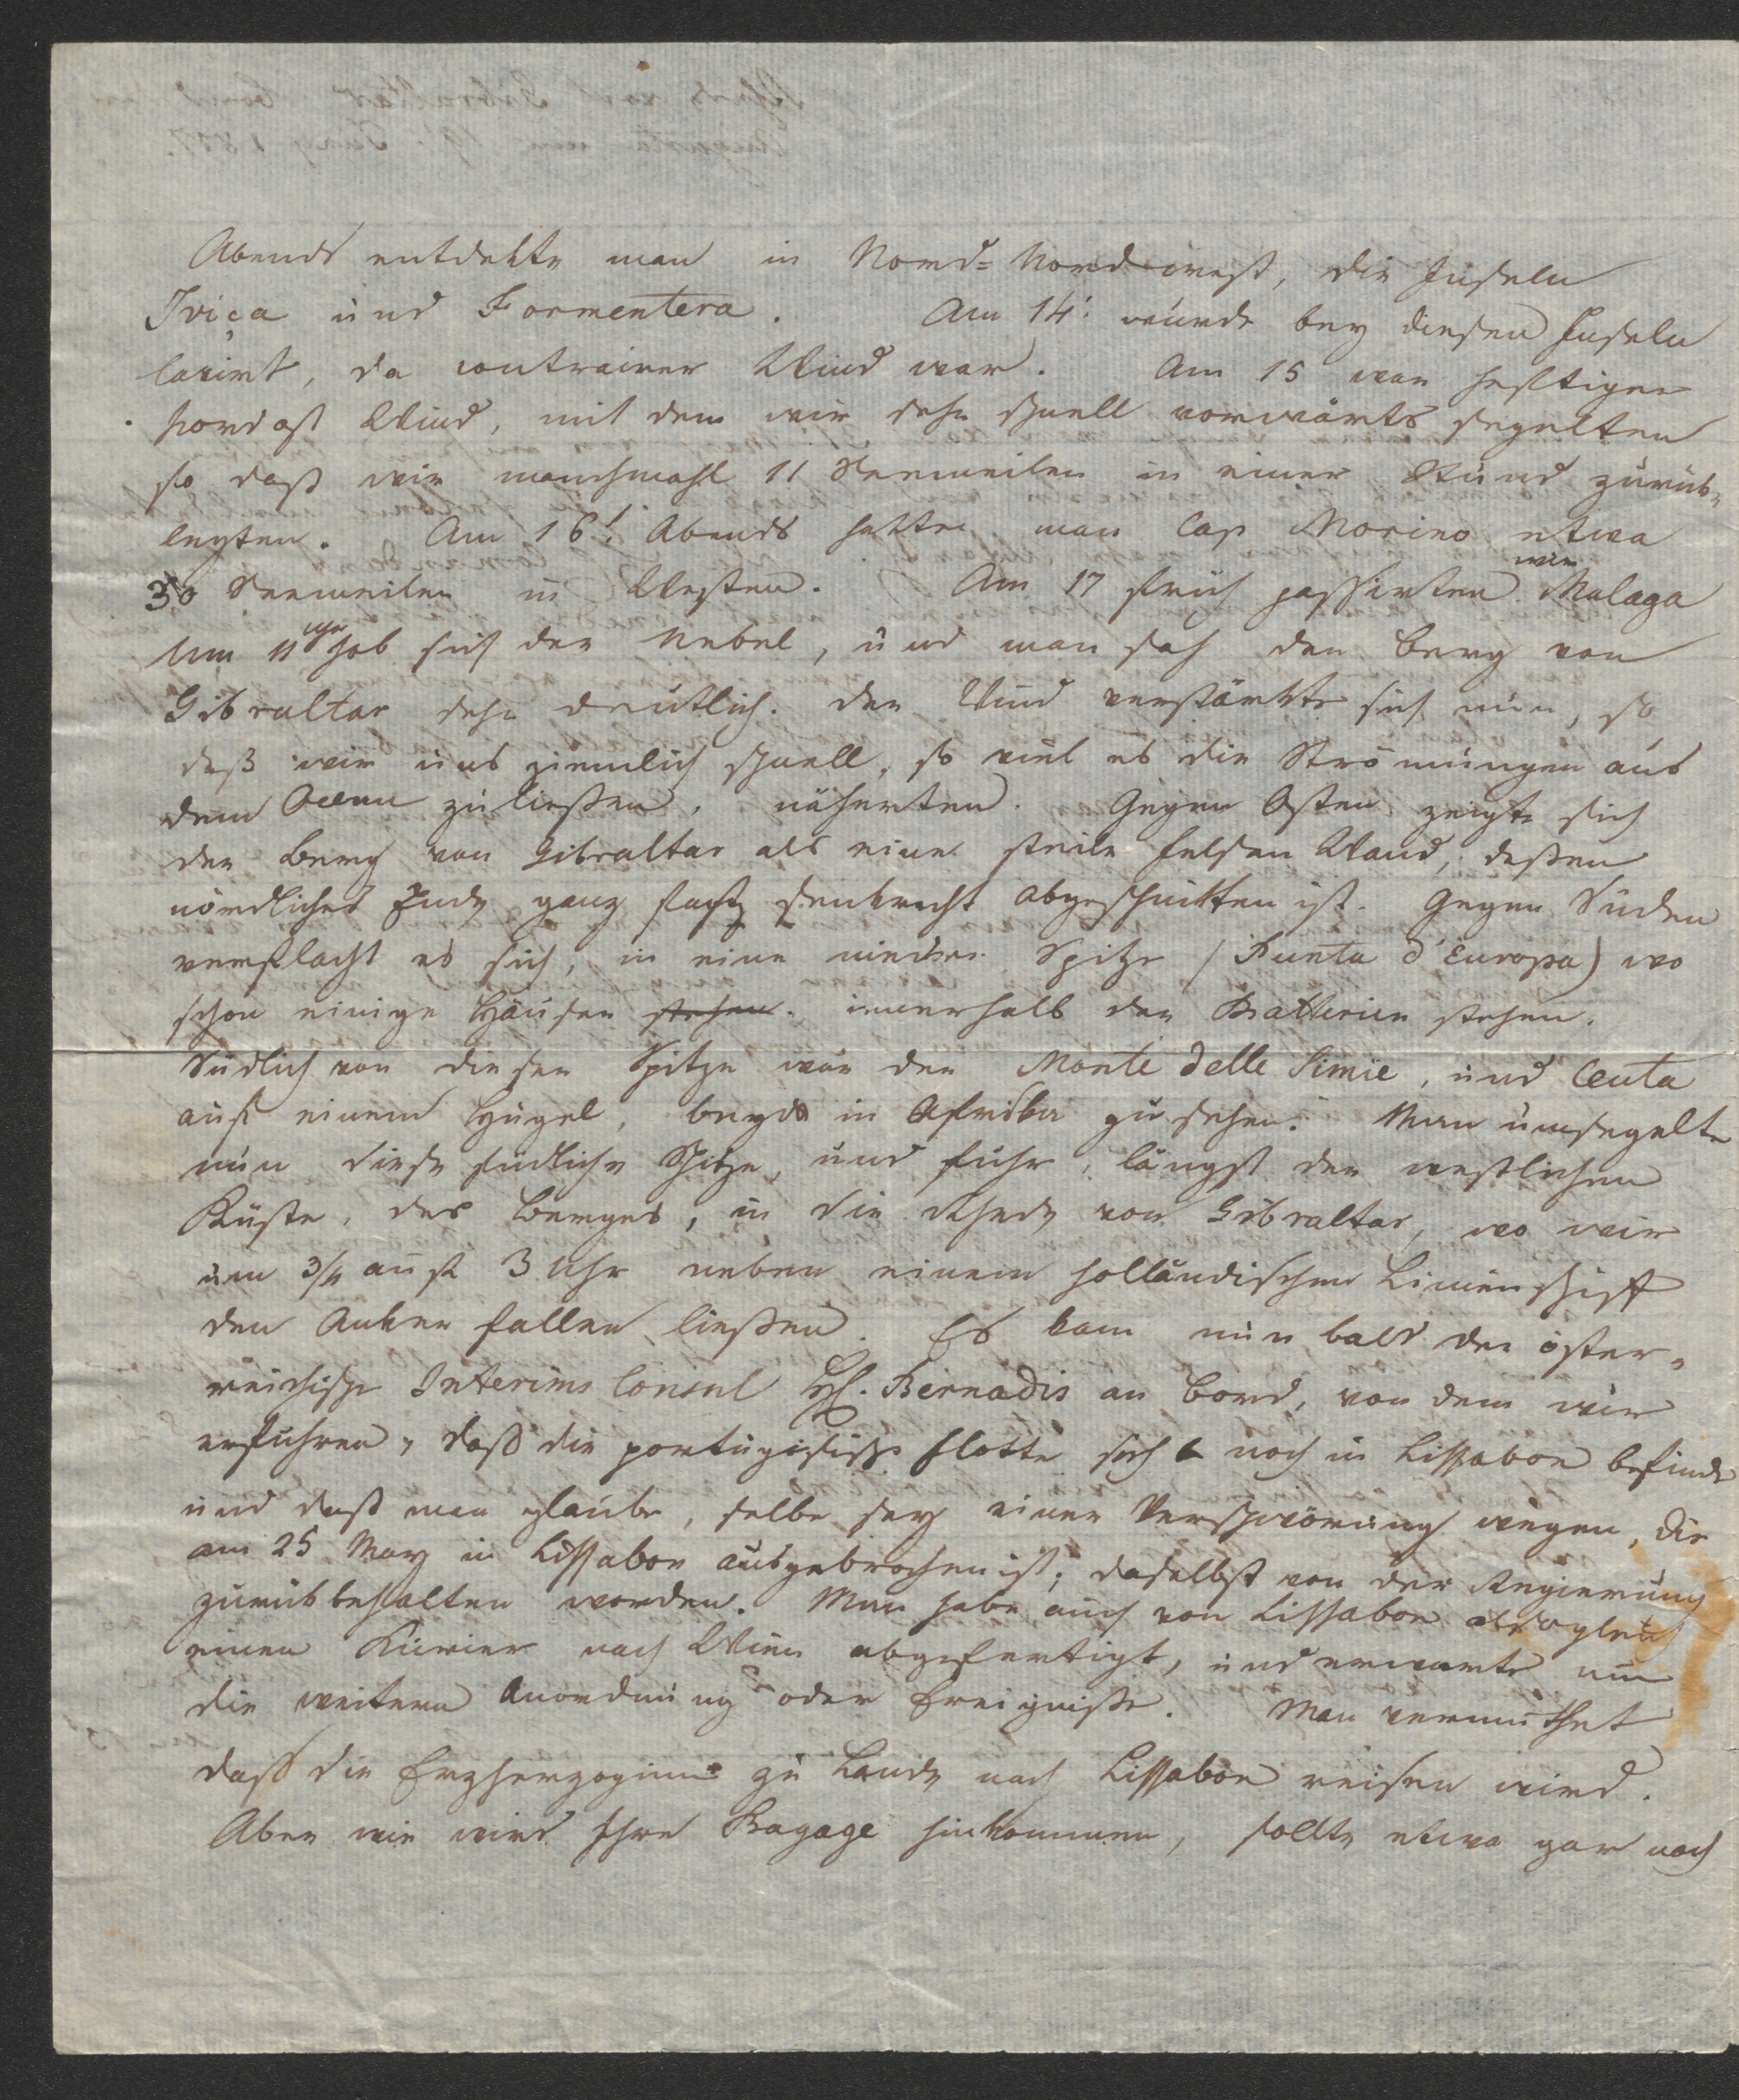 Abends entdekte man in Nord=Nordwest, die Inseln
Iviça und Formentera. Am 14t wurde bey diesen Inseln
lavirt, da contrairer Wind war. Am 15 war heftiger
Nordost Wind, mit dem wir sehr schnell vorwärts segelten
so daß wir manchmahl 11 Seemeilen in einer Stund zurük=
legten. Am 16t Abends hatte man Cap Morino etwa
30 Seemeilen in Westen. Am 17 früh passirten wir Malaga
Um 11 Uhr hob sich der Nebel, und man sah den Berg von
Gibraltar sehr deutlich. Der Wind verstärkte sich nun, so
daß wir uns ziemlich schnell, so viel es die Strömungen aus
dem Ocean zuließen, näherten. Gegen Osten zeigte sich
der Berg von Gibraltar als eine steile Felsen Wand, deßen
nördliches Ende ganz senkrecht abgeschnitten ist. Gegen Süden
verflacht es sich, in eine niedere Spitze (Punta d'Europa) wo
schon einige Häuser stehen innerhalb der Batterien stehen.
Südlich von dieser Spitze war der Monte delle Simie, und Ceuta
auf einem Hügel, beyde in Afrika zu sehen. Man umsegelte
nun diese südliche Spitze, und fuhr, längst der westlichen
Küste, des Berges, in die Rhede von Gibraltar, wo wir
um 3/4 auf 3 Uhr neben einem holländischen Linienschiff
den Anker fallen ließen. Es kam nun bald der öster=
reichische Interims Consul H. Bernadis an Bord, von dem wir
erfuhren, daß die portugisische Flotte sich noch in Lissabon befinde
und daß man glaube, selbe sey einer Verschwörung wegen, die
am 25 May in Lissabon ausgebrochen ist, daselbst von der Regierung
zurükbehalten worden. Man habe auch von Lissabon sogleich
einen Kurier nach Wien abgefertigt, und erwarte nun
die weitern Anordnung oder Ereigniße. Man vermuthet
daß die Erzherzoginn zu Lande nach Lissabon reisen wird.
Aber wie wird Ihre Bagage hinkommen, sollte etwa gar noch